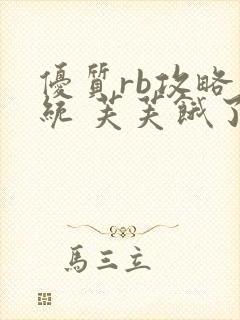 優質rb攻略
統 芙芙餓了
馬三立